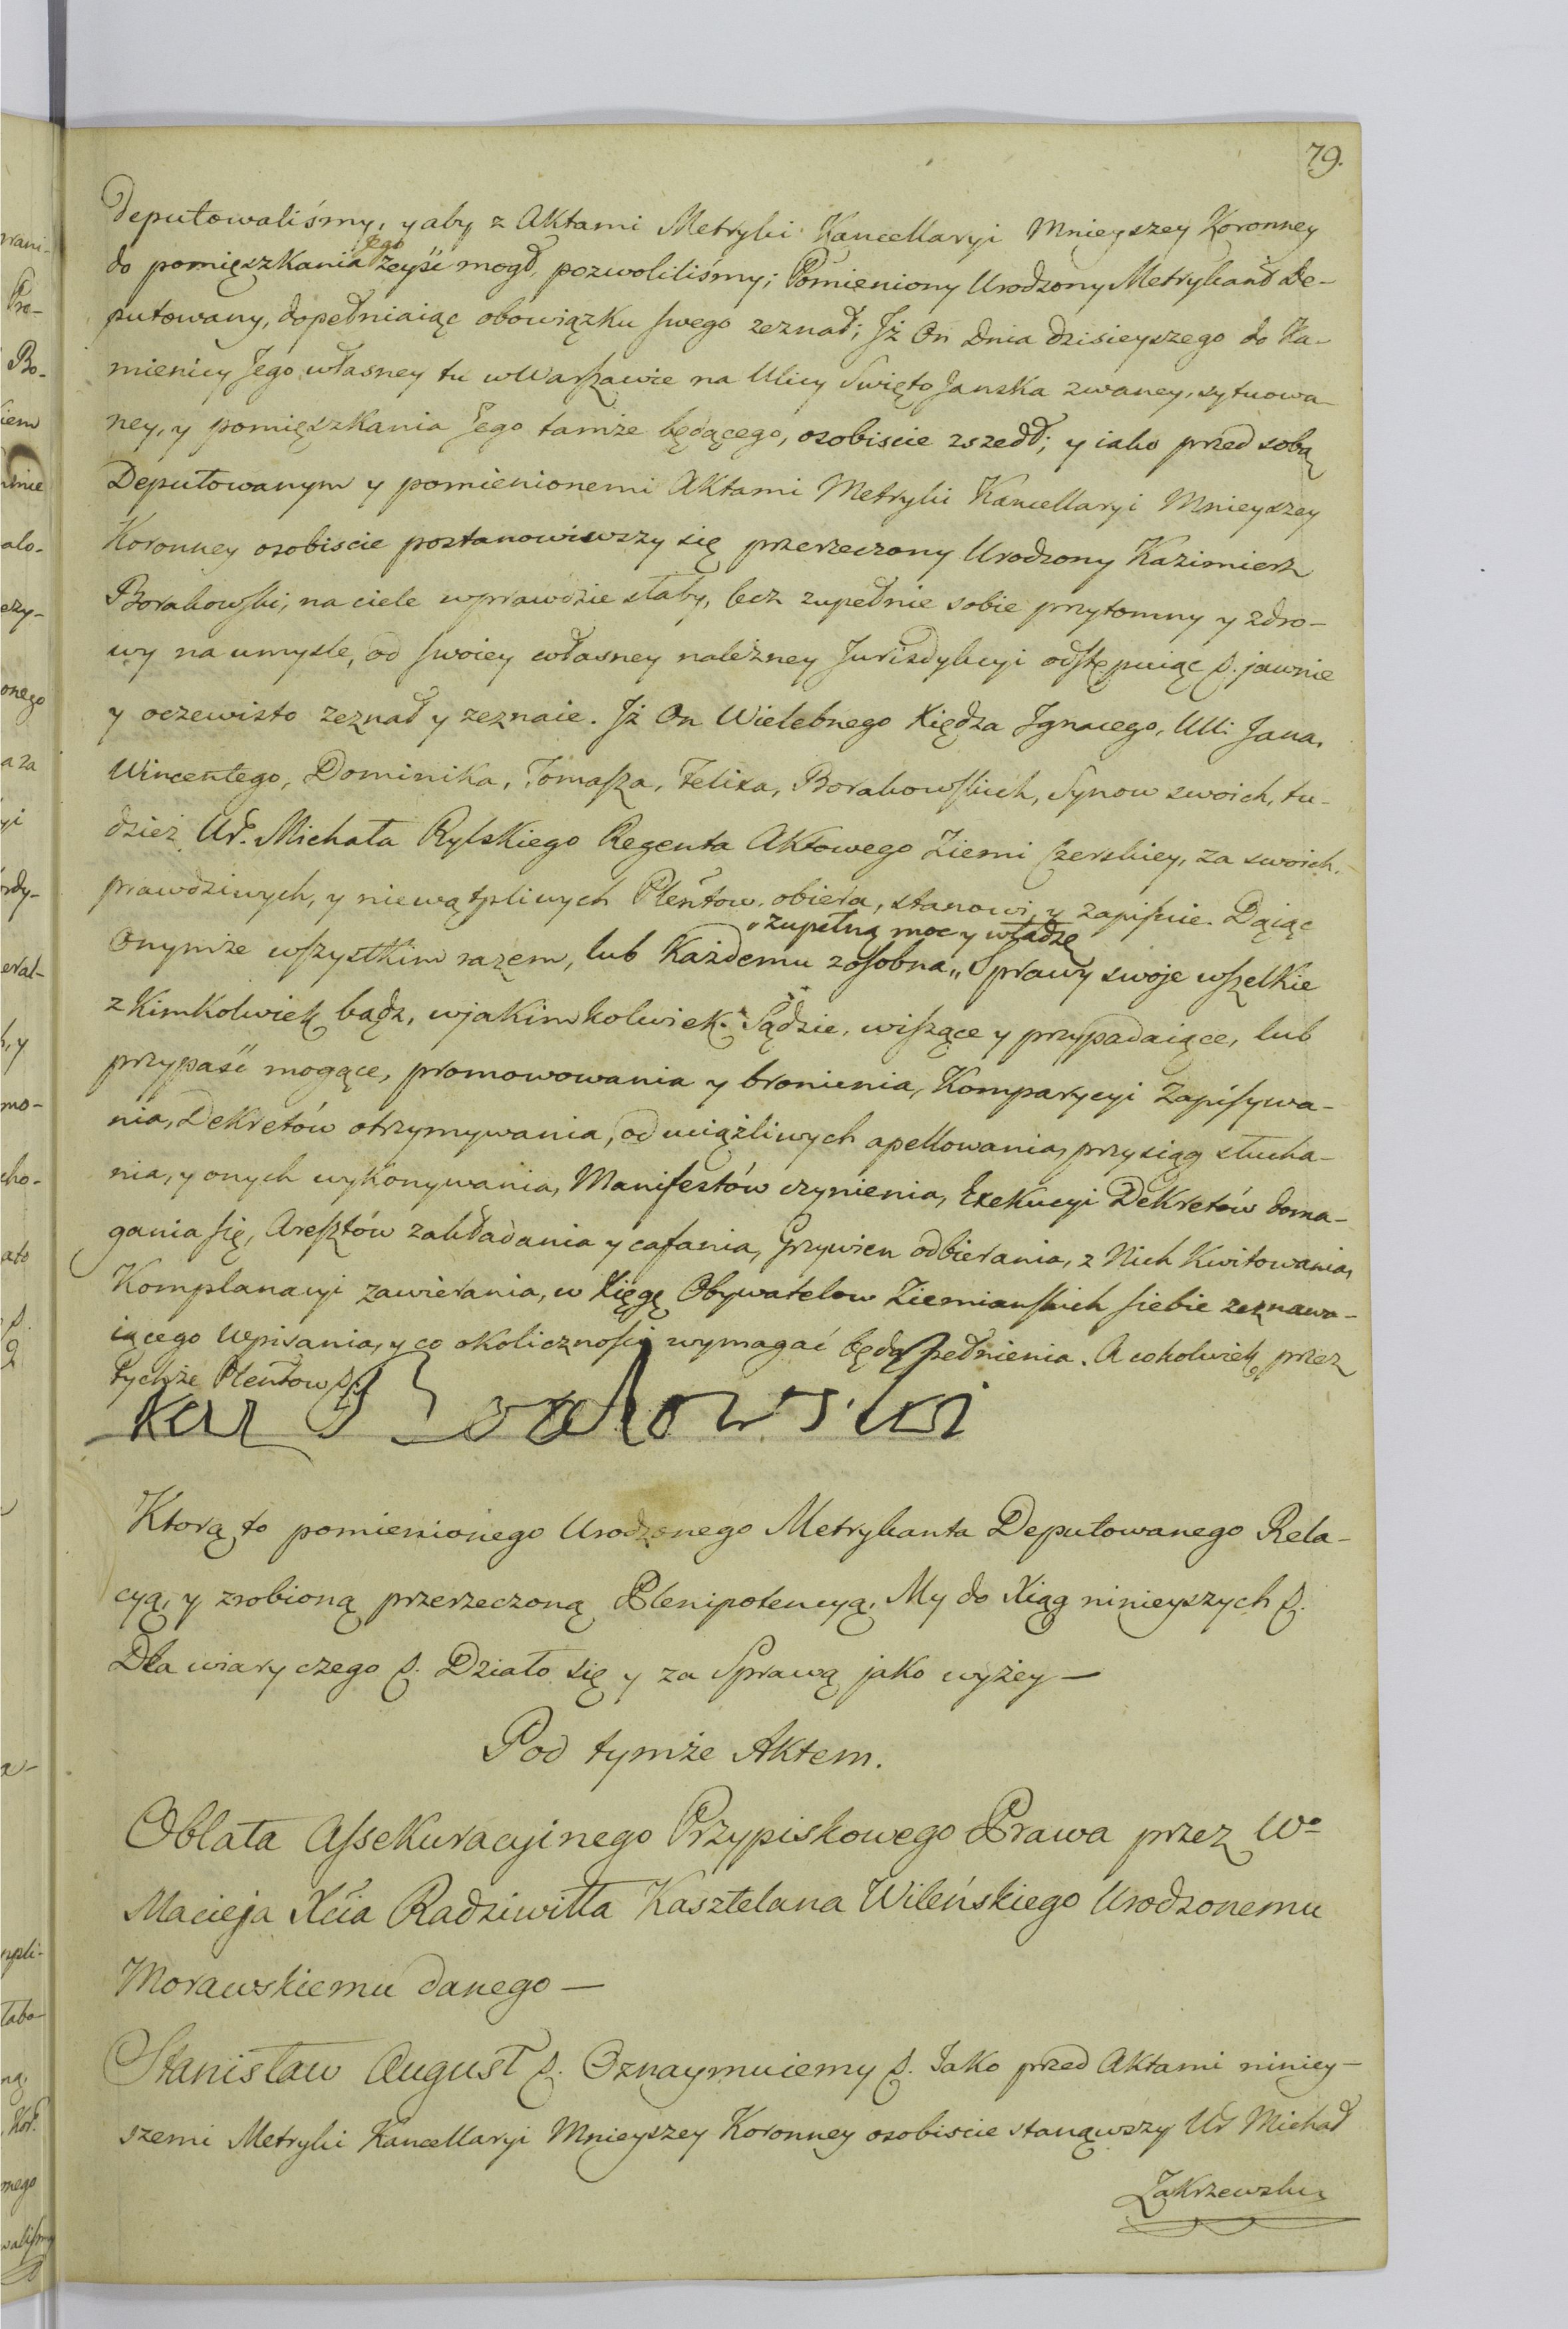 79.
Deputowaliśmy, y aby z Aktami Metryki Kancellaryi Mnieyszey Koronney
Jego
do pomięszkania zeyść mogł, pozwoliliśmy; Pomieniony Urodzony Metrykant De-
putowany, dopełniaiąc obowiązku swego zeznał; Jż On Dnia dzisieyszego do Ka-
mienicy Jego własney tu w Warszawie na Ulicy Swięto Janska zwaney, sytuowa-
ney, y pomięszkania Jego tamże będącego, osobiscie zszedł; y iako przed sobą
Deputowanym y pomienionemi Aktami Metryki Kancellaryi Mnieyszey
Koronney osobiscie postanowiwszy się przerzeczony Urodzony Kazimierz
Borakowski, na ciele wprawdzie słaby, lecz zupełnie sobie przytomny y zdro-
wy na umysle, od swoiey własney należney Jurisdykcyi odstępuiąc p. jawnie
y oczewisto zeznał y zeznaie. Jż On Wielebnego Xiędza Jgnacego, UU: Jana,
Wincentego, Dominika, Tomasza, Felixa, Borakowskich, Synow swoich, tu-
dzież Ur. Michała Rylskiego Regenta Aktowego Ziemi Czerskiey, za swoich
prawdziwych, y niewątpliwych Plentow, obiera, stanowi, y zapisuie. Daiąc
"zupełną moc y władzę
Onymże wszystkim razem, lub Każdemu zosobna„ Sprawy swoje wszelkie
z Kimkolwiek bądz, w jakimkolwiek Sądzie, wiszące y przypadaiące, lub
przypaść mogące, promowowania y bronienia, Komparycyi Zapisywa-
nia, Dekretów otrzymywania, od uciążliwych apellowania, przysiąg słucha-
nia, y onych wykonywania, Manifestów czynienia, Exekucyi Dekretów doma-
gania się, Aresztów zakładania y cafania, Grzywien odbierania, z Nich Kwitowania,
Komplanacyi zawierania, w Xięgę Obywatelow Ziemianskich siebie zeznawa-
iącego Wpisania, y co okoliczności wymagać będą pełnienia. A cokolwiek przez
tychże Plentow p.
Kaz Borakowski
Ktorą to pomienionego Urodzonego Metrykanta Deputowanego Rela-
cyą, y zrobioną przerzeczoną Plenipotencyą, My do Xiąg ninieyszych p.
Dla wiary czego p. Działo się y za Sprawą jako wyżey —
Pod tymże Aktem.
Oblata Assekuracyinego Przypiskowego Prawa przez Wo
Macieja Xcia Radziwiłła Kasztelana Wileńskiego Urodzonemu
Morawskiemu danego —
Stanisław August p. Oznaymuiemy p. Jako przed Aktami niniey-
szemi Metryki Kancellaryi Mnieyszey Koronney osobiscie stanąwszy Ur Michał
Zakrzewski